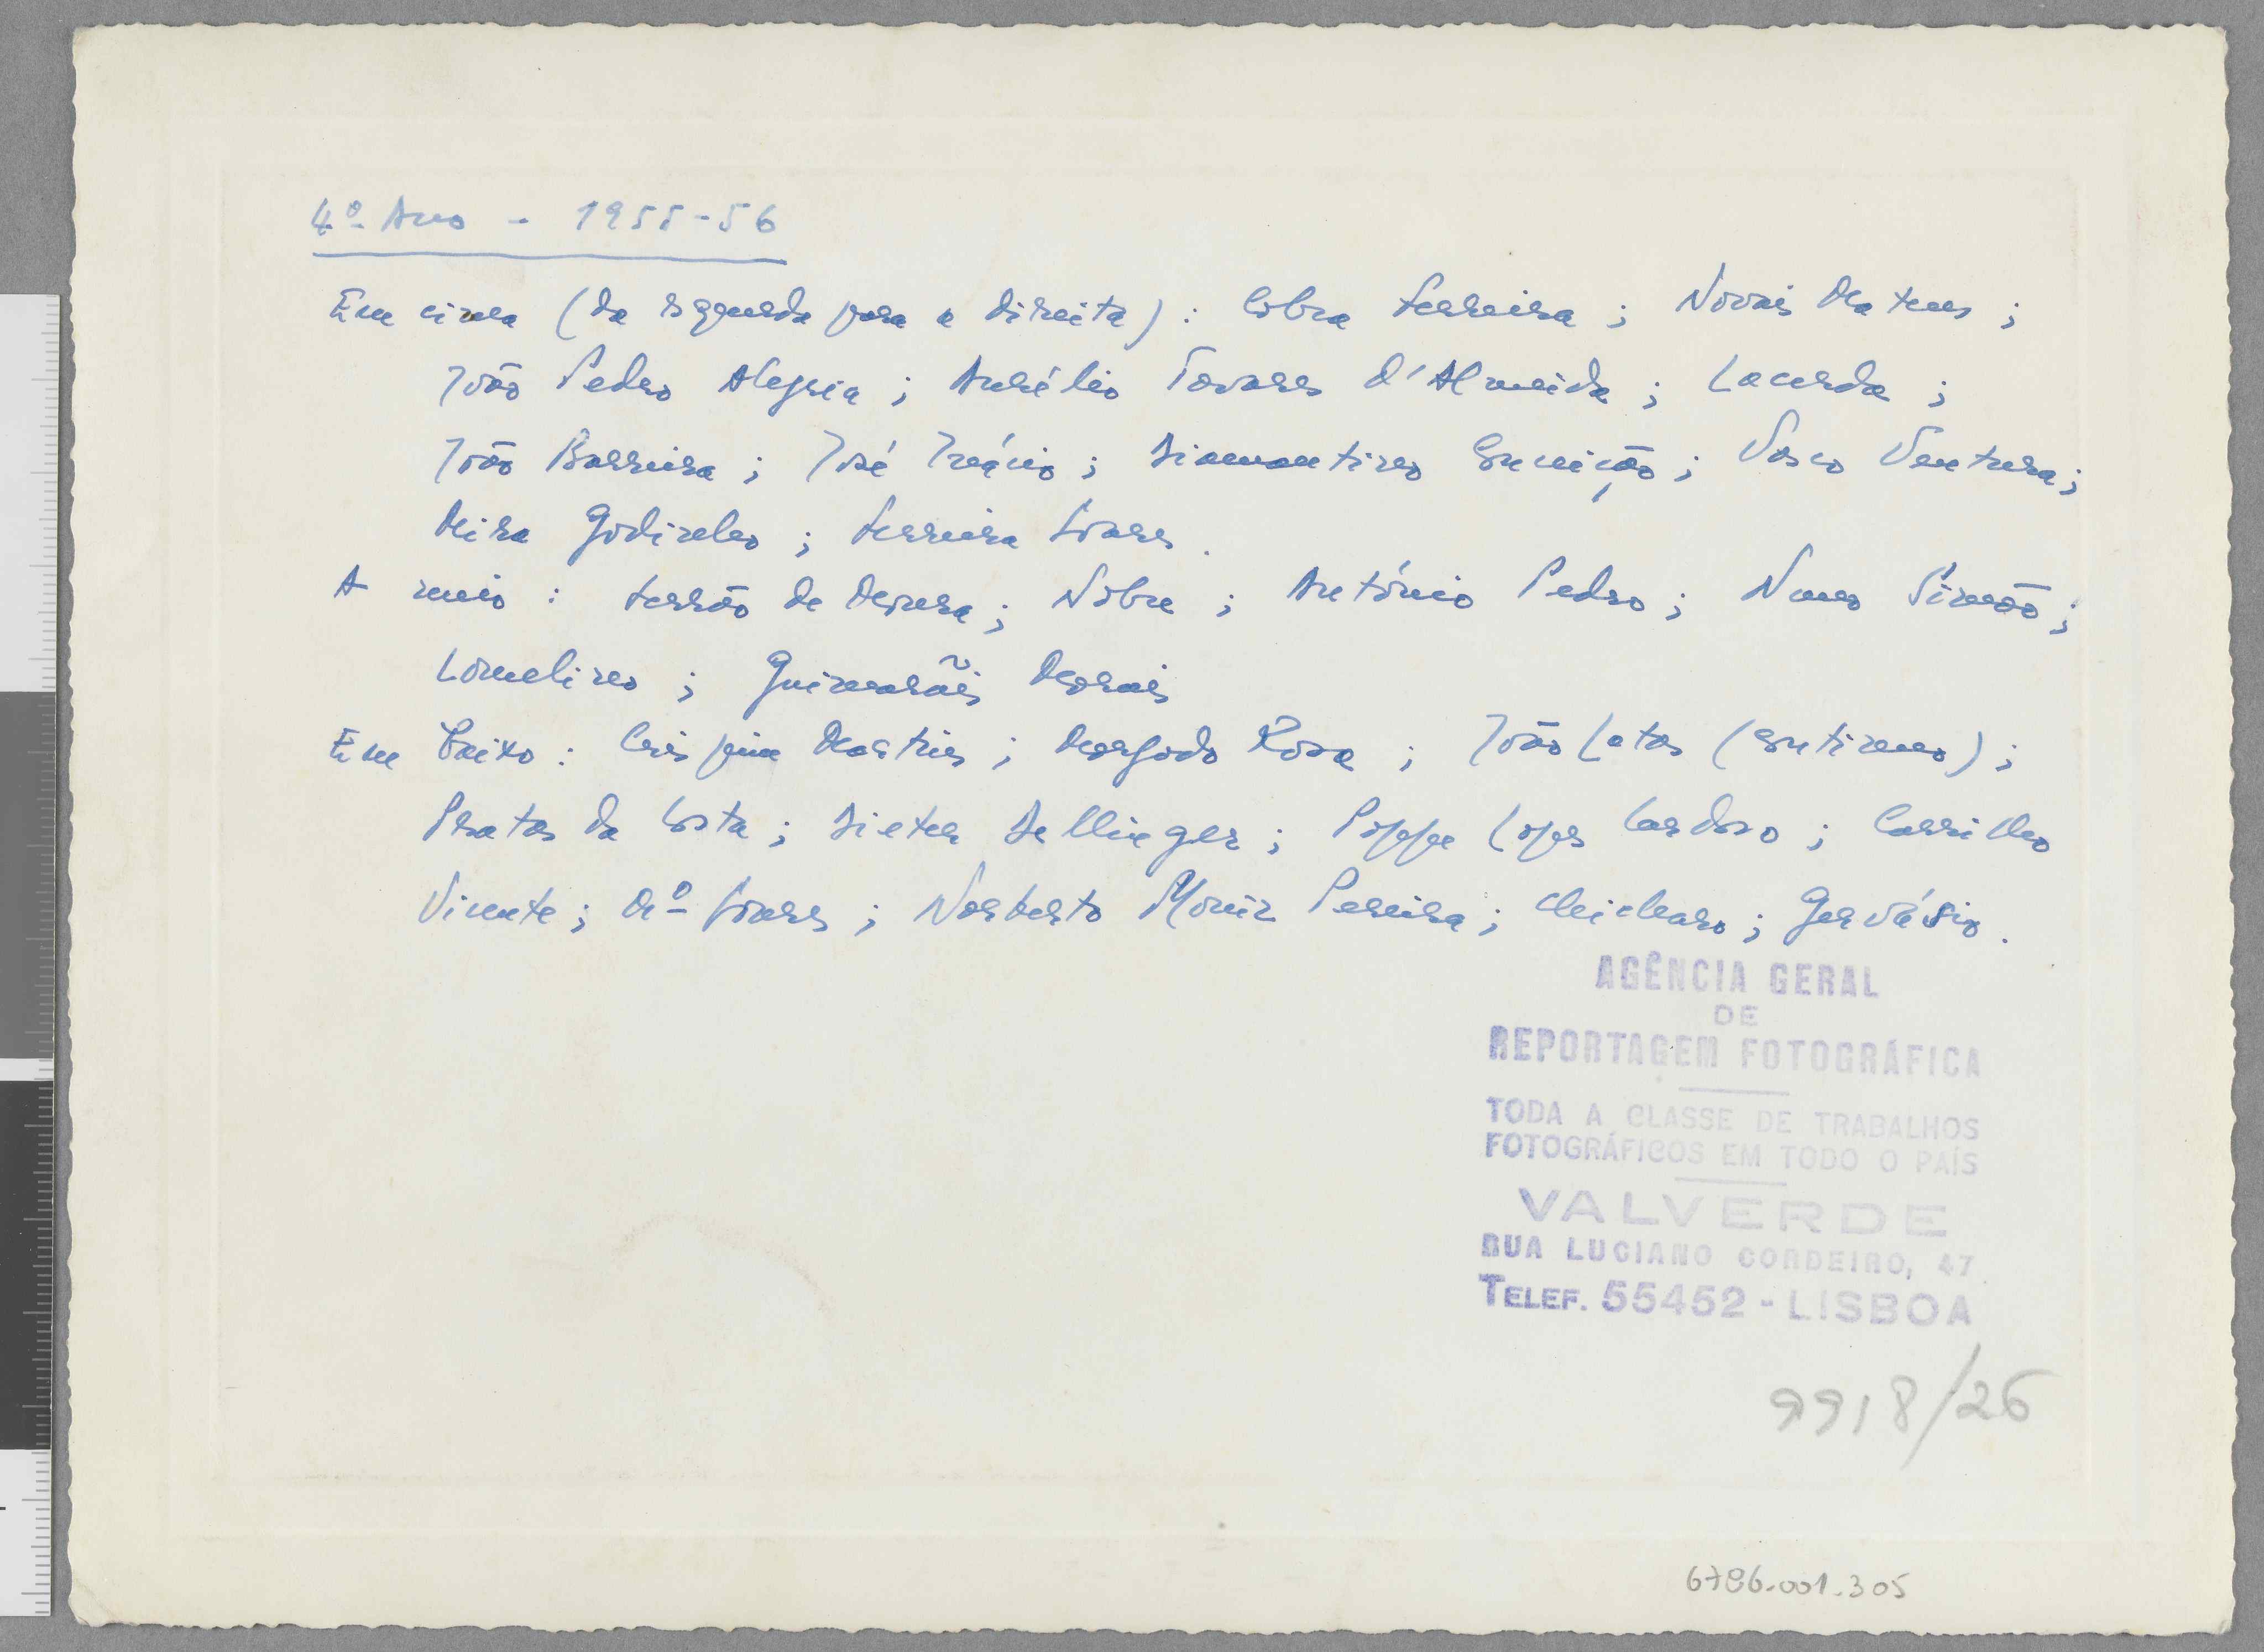 4º Ano - 1955-56
Em cima (da esquerda para a direita): Cobra Ferreira; Novais Mateus;
João Pedro Alegria; Aurélio Tavares d'Almeida; Lacerda;
João Barreira; José Inácio; Diamantino Conceição; Vasco Ventura;
Meira Godinho; Ferreira Soares.
A meio: Serrão de Moura; Nobre; António Pedro; Nuno Simão;
Lomelino; Guimarãis Morais
Em baixo: Crispim Martins; Morgado Rosa; João Latas (contínuo);
Pratas da Costa; Dieter Dellinger; Poppe Lopes Cardoso; Carrilho
Vicente; Mº Soares; Norberto Moniz Pereira; Chicharo; Gervásio.
AGÊNCIA GERAL
DE
REPORTAGEM FOTOGRÁFICA
TODA A CLASSE DE TRABALHOS
FOTOGRÁFICOS EM TODO O PAÍS
VALVERDE
RUA LUCIANO CORDEIRO, 47
TELEF. 55452 - LISBOA
9918/26
6786.001.305